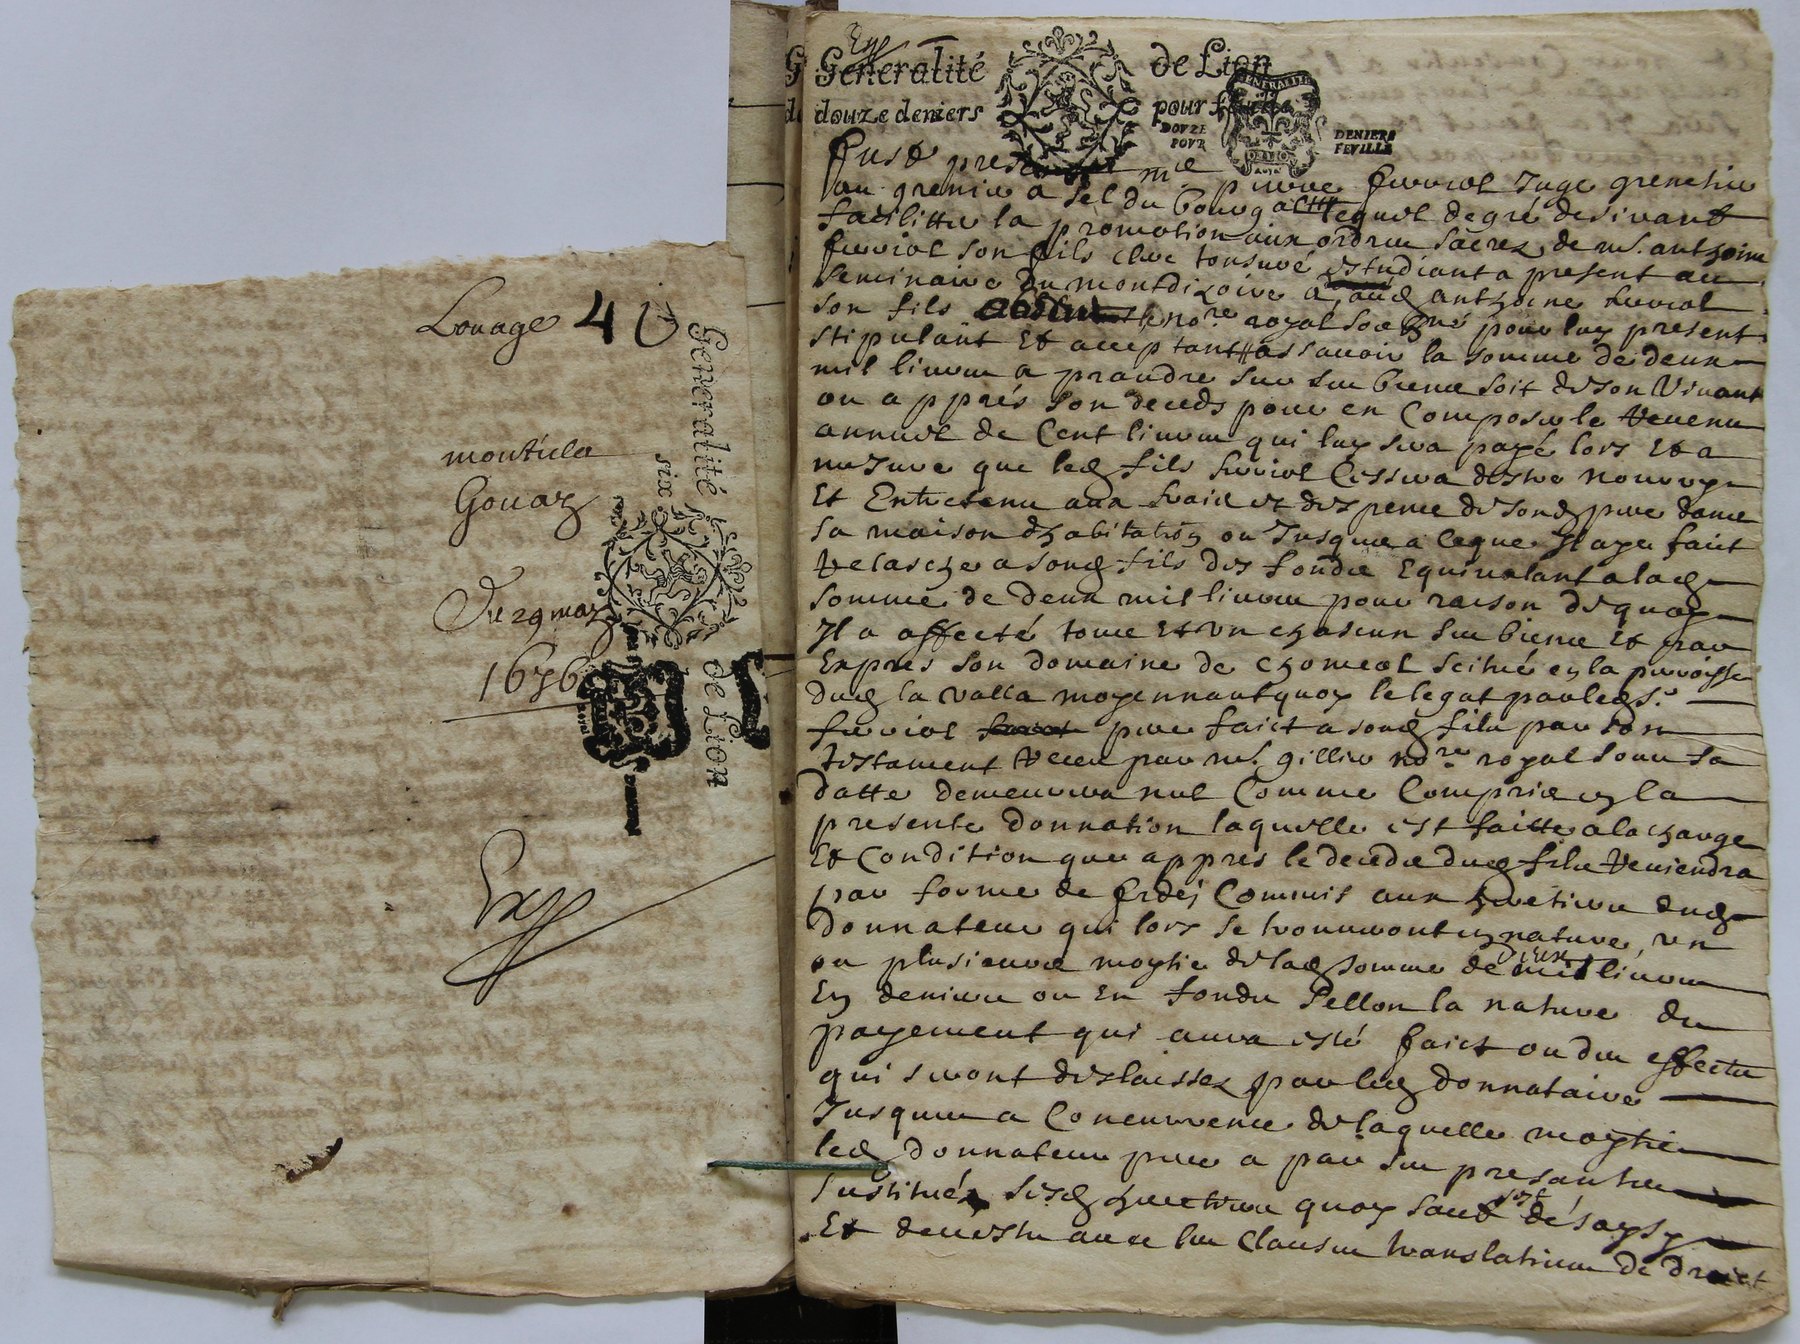 Louage 4
montúla
Gouaz
Du 29 mars
1676
Exp
Generalité
six
de Lion
Exp
Generalité de Lion
douze deniers pour feuille
GENERALITE
DOVZE DENIERS
POVR FEVILLE
fust present me pierre ferriol Juge grenetier
au grenie a sel du bourg lequel de gré desirant
facilitter la promotion aux ordres sacrez de mr. anthoine
ferriol son fils clerc tonsuré estudiant a present au
seminaire a aud anthoine ferriol
son fils nore. royal soubzné pour luy present
stipulant Et acceptant assauoir la somme de deux
mil liures a prandre sur ses biens soit de son Viuant
ou apprés son deceds pour en Composer le revenu
annuel de Cent liures qui luy sera payé lors Et a
mesure que led fils ferriol Cessera destre nourry
Et Entretenu aux fraix et despens de sond pere dans
sa maison dhabitation ou Jusques a ceque Il aye faict
relasche a sond fils des fonds Equiualant a lad
somme de deux mil liures pour raison de quoy
Il a affecté tous Et vn chascun ses biens Et par
Exprés son domaine de chomeol scitué en la parroisse
dud la valla moyennant quoy le legat par led sr.
ferriol pere faict a sond fils par son
testament receu par mr. gillier nore. royal sous sa
datte demeurera nul Comme Compris en la
presente donnation laquelle est faitte a la charge
Et Condition que appres le deceds dud fils reuiendra
par forme de fidej Commis aux heretiers dud
donnateur qui lors se trouueront en nature vn
ou plusieurs moytie de lad somme de deux mil liures
En deniers ou En fonds sellon la nature du
payement qui aura esté faict ou des effects
qui seront deslaissez par led donnataire
Jusques a Concurrence de laquelle moytie
led donnateur pere a par ses presantes
Institués sesd heretiers quoy sest désaysy
Et deuestu auec les Clauses translatiues de droict